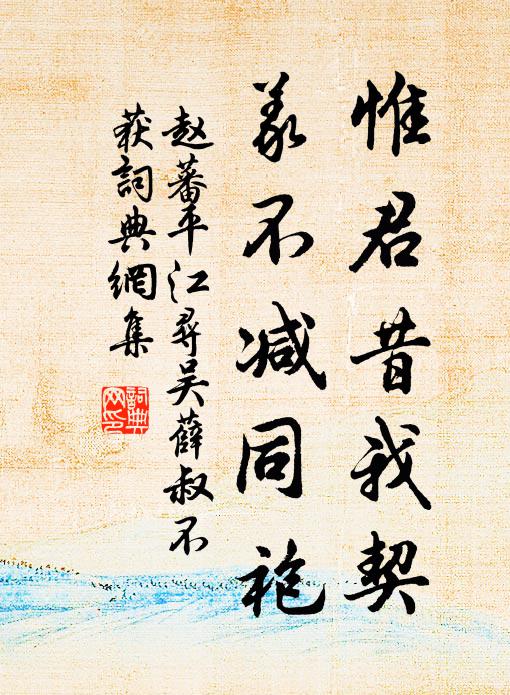 惟君昔我契
義不减同袍
赵蕃平江尋吴薛叔不
获詞典網集
詞典
网印